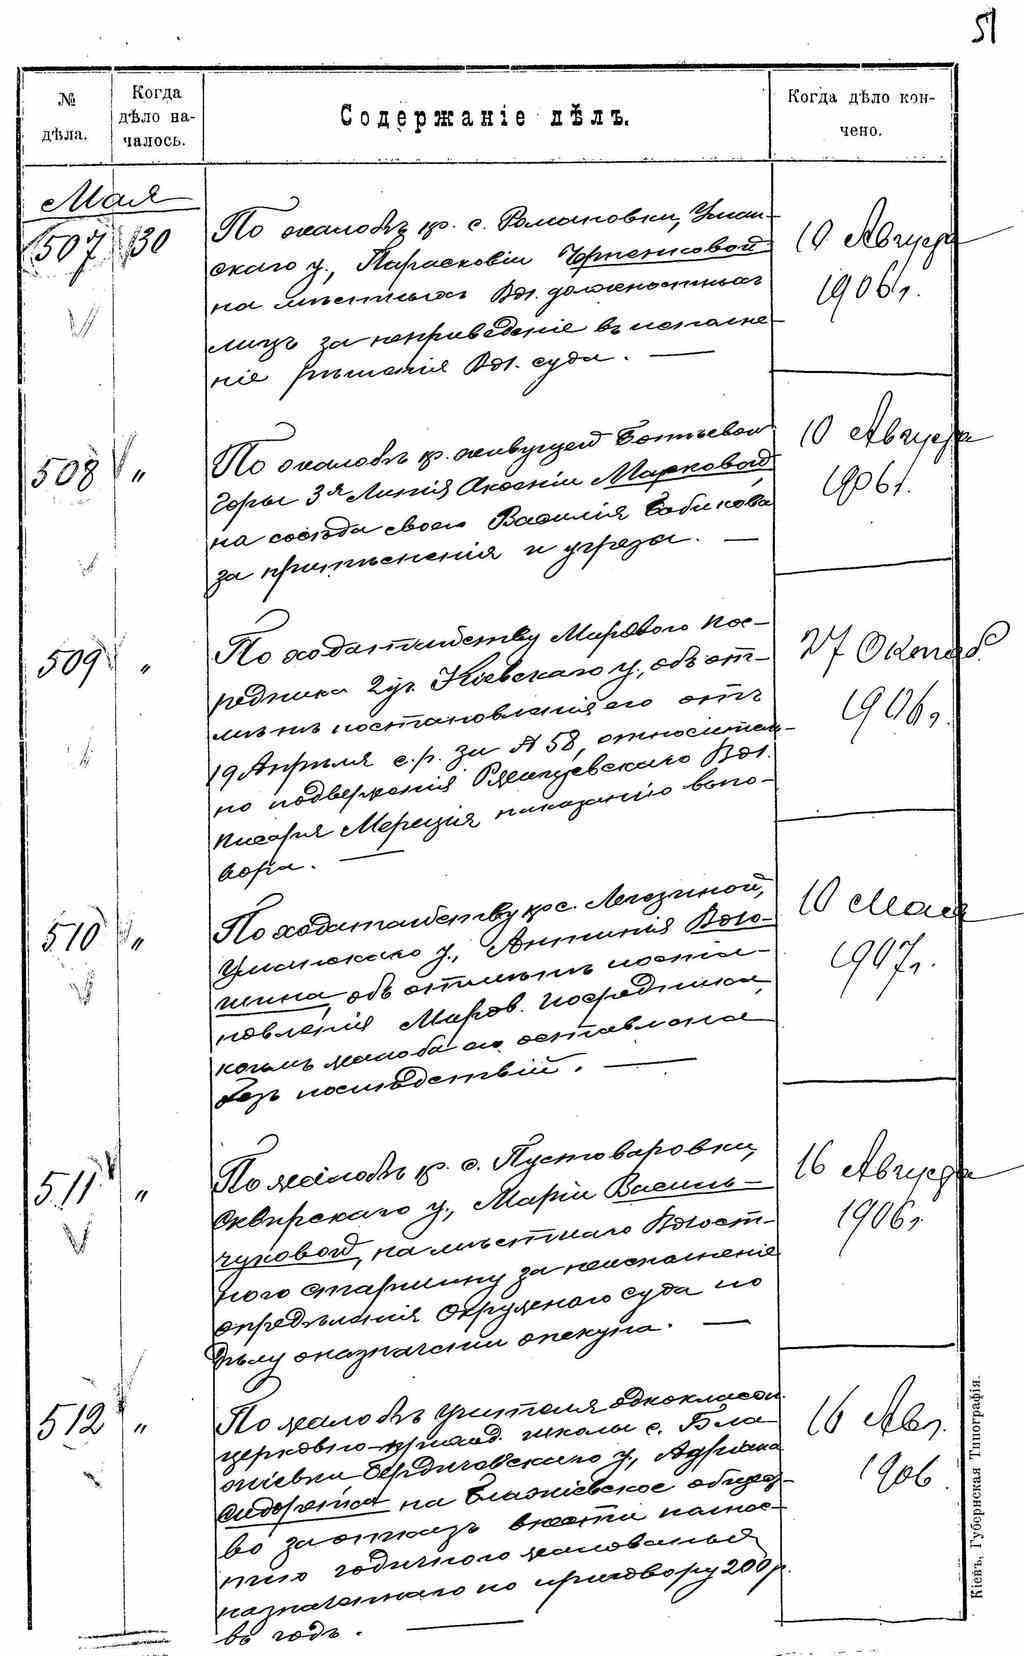 51
№ дѣла.
Когда дѣло началось.
Содержаніе дѣлъ.
Когда дѣло кончено.
Мая
507
30
По жалобѣ кр. с. Романовки, Уман-
скаго у., Параскевіи
на мѣстныхъ Вол. должностныхъ
лицъ за неприведеніе въ исполне-
ніе рѣшенія Вол. суда. —
10 Августа
1906 г.
508
"
По жалобѣ кр. живущей Батыевой
Горы 3я Линія Аксеніи Марковой
на сосѣда своего Василія Бабикова
за притѣсненія и угрозы. —
10 Августа
1906 г.
509
"
По ходатайству Мирового Пос-
редника 2 уч. Кіевскаго у., объ от-
мѣнѣ постановленія его отъ
19 Апрѣля с.г. за № 58, относитель-
но подверженія Вол.
писаря наказанію выго-
вора. —
27 Октяб.
1906 г.
510
"
По ходатайству кр. с. Легезиной,
Уманскаго у.,
объ отмѣнѣ поста-
новленія Миров. Посредника,
коимъ жалоба его оставлена
безъ послѣдствій. —
10 Мая
1907 г.
511
"
По жалобѣ кр. с. Пустоваровки,
Сквирскаго у., Маріи Василь-
чуковой, на мѣстнаго Волост-
ного старшину за неисполненіе
опредѣленія Окружного Суда по
дѣлу о назначеніи опекуна. —
16 Августа
1906 г.
512
"
По жалобѣ учителя одноклассн.
церковно-приход. школы с. Бла-
жіевки Бердичовскаго у., Адріана
Сидоренка на Блажіевское общест-
во за отказъ внести полнос-
тію годичного жалованья
назначеннаго по приговору 200 р.
въ годъ. —
16 Авг.
1906
Кіевъ, Губернская Типографія.